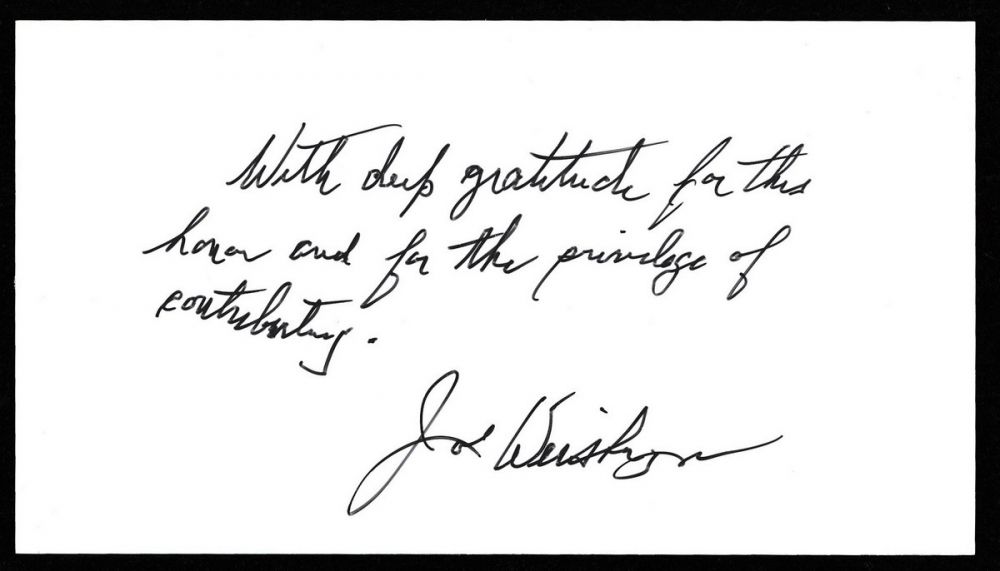 With deep gratitude for this
honor and for the privilege of
contributing.
Joe